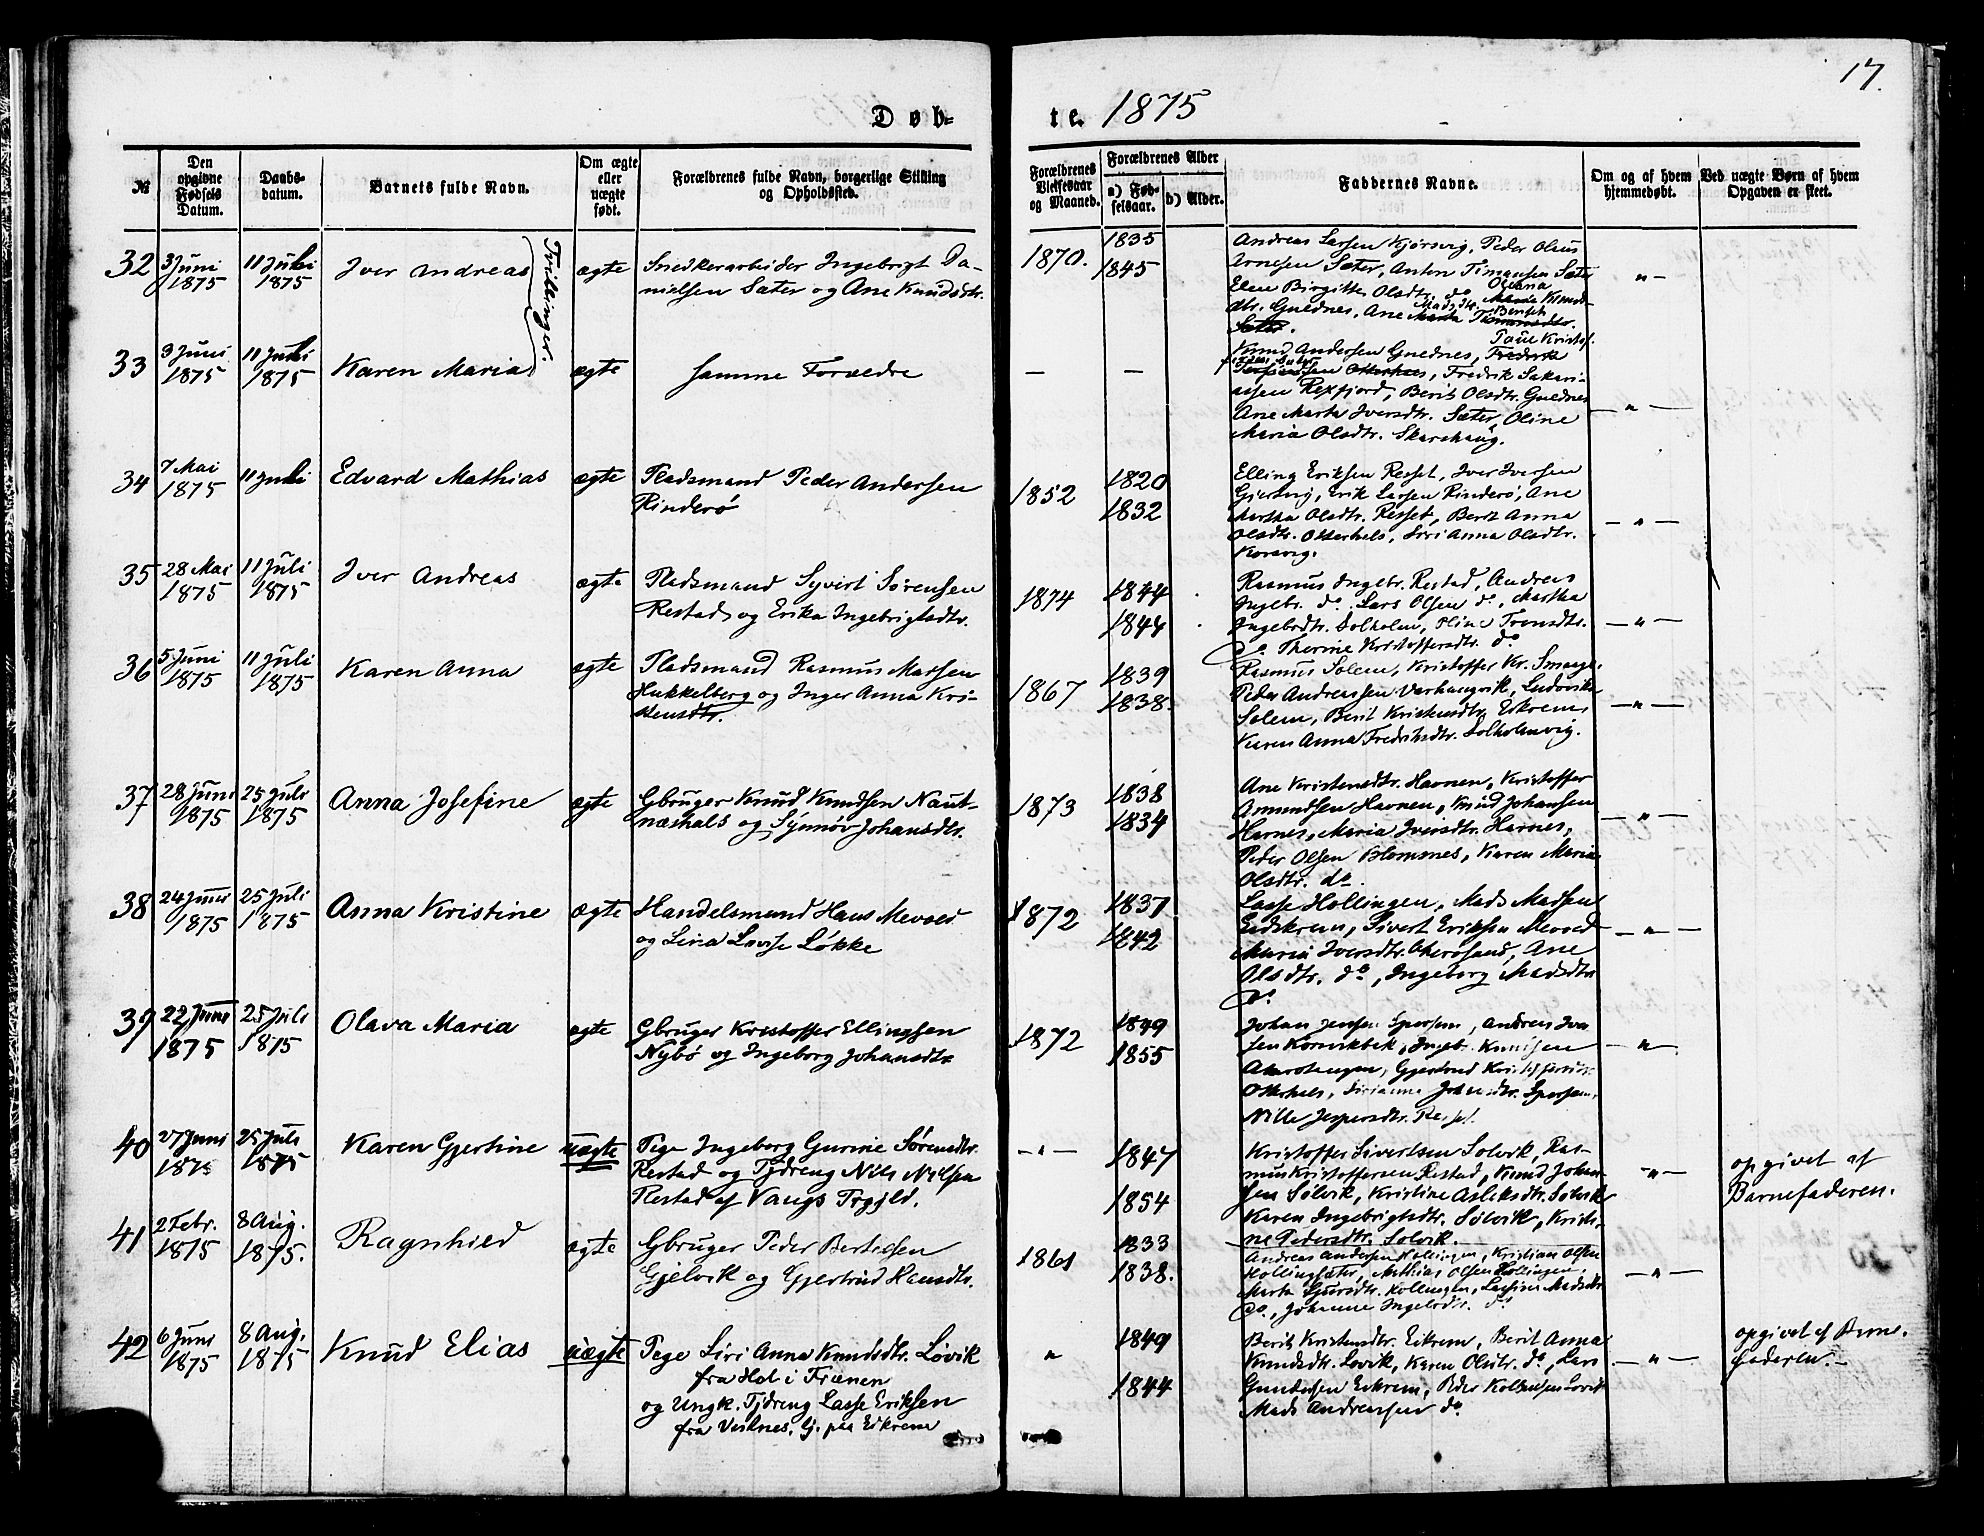 17.
Døb-
te. 1875
№
Den opgivne Fødsels Datum.
Daabs-datum.
Barnets fulde Navn.
Om ægte eller uægte født.
Forældrenes fulde Navn, borgerlige Stilling og Opholdssted.
Forældrenes Vielsesaar og Maaned.
Forældrenes Alder
a) Fød-selsaar.
b) Alder.
Faddernes Navne.
Om og af hvem hjemmedøbt.
Ved uægte Børn af hvem Opgaven er skeet.
32 3 Juni 1875 11 Juli 1875 Iver Andreas ægte Snedkerarbeider Ingebrigt Da-
nielsen Sæter og Ane Knudsdtr.
Trillinger.
1870. 1835 1845
Andreas Larsen Kjørsvig, Peder Olaus
Arnesen Sæter, Anton Timansen Sæter
Elen Birgitte Olsdtr. do Oleana
dtr. Gueldnes, Ane
Sæter.
33 3 Juni 1875 11 Juli 1875 Karen Maria ægte samme Forældre
— —
Paul Kristof-
Knud Andersen Gueldnes, Fredrik
Otterhals, Fredrik Sakari-
assen Rexfjord, Berit Olsdtr. Gueldnes
Ane Marta Iversdtr. Sæter, Oline
Maria Olsdtr. Skarshaug.
34 7 Mai 1875 11 Juli Edvard Mathias ægte Pladsmand Peder Andersen
Rinderø
1852 1820 1832
Elling Eriksen Resset, Iver Iversen
Gjertvig, Erik Larsen Rinderø, Ane
Martha Olsdtr. Resset, Berit Anna
Olsdtr. Otterhels, Siri Anna Olsdtr.
Korsvig.
35 28 Mai 1875 11 Juli 1875 Iver Andreas ægte Pladsmand Syvert Sørensen
Restad og Erika Ingebrigtsdtr.
1874 1844 1844
Rasmus Ingebr. Restad, Andreas
Ingebr. do. Lars Olsen do, Martha
Ingebrdtr. Solholm, Oline Tronsdtr.
do. Therine Kristoffersdtr. do
36 5 Juni 1875 11 Juli 1875 Karen Anna ægte Pladsmand Rasmus Madsen
Hukkelberg og Inger Anna Kri-
stensdtr.
1867 1839 1838.
Rasmus Solem, Kristoffer Kr. Smaage
Peder Andreassen Varhaugvik, Ludovika
Solem, Berit Kristensdtr. Eikrem
Karen Anna Fredriksdtr. Solholmvig.
37 28 Juni 1875 25 Juli 1875 Anna Josefine ægte Gbruger Knud Knudsen Naut-
næshals og Synnøv Johansdtr.
1873 1838 1834
Ane Kristensdtr. Havnen, Kristoffer
Amundsen Havnen, Knud Johansen
Harnes, Maria Iversdtr. Harnes,
Peder Olsen Blomnes, Karen Maria
Olsdtr. do.
38 24 Juni 1875 25 Juli 1875 Anna Kristine ægte Handelsmand Hans Mevold
og Lina Lovise Løkke
1872 1837 1842
Lasse Hollingen, Mads Madsen
Eidskrem, Sivert Eriksen Mevold
Maria Iversdtr. Akerøsund, Ane
Olsdtr. do, Ingeborg Madsdtr
do.
39 22 Juni 1875 25 Juli 1875 Olava Maria ægte Gbruger Kristoffer Ellingsen
Nybø og Ingeborg Johansdtr
1872 1849 1855
Johan Jensen Sporsem, Andreas Iver
sen Korsvikbek, Ingeb. Knudsen
Gjertrud Kristoffersdtr.
Otterhels, Sirianna Johnsdtr. Sporsem,
Nille Jespersdtr. Resset.
40 27 Juni 1875 25 Juli 1875 Karen Gjertine uægte Pige Ingeborg Gurine Sørensdtr.
Restad og Tjdreng Nils Nilsen
Restad af Vangs Prgjld.
—"— 1847 1854
Kristoffer Sivertsen Solvik, Ras-
mus Kristoffersen Restad, Knud Johan-
sen Solvik, Kristine Aslaksdtr. Solvik
Karen Ingebrigtsdtr. Solvik, Kristi-
ne Pedersdtr. Solvik.
opgivet af
Barnefaderen.
41 2 Febr. 1875 8 Aug. 1875. Ragnhild ægte Gbruger Peder Bertelsen
Gjelvik og Gjertrud Hansdtr.
1861 1833 1838.
Andreas Andersen Hollingen, Kristian Olsen
Hollingsæter, Mathias Olsen Hollingen,
Marta Sjursdtr. Hollingen, Lasine Madsdtr
do., Johanne Ingebrdtr. do
42 6 Juni 1875 8 Aug. 1875 Knud Elias uægte Pige Siri Anna Knudsdtr. Løvik
fra Hol i Frænen
og Ungk. Tjdreng Lasse Eriksen
fra Veilnes, Tj. paa Eikrem
" 1849 1844
Berit Kristensdtr. Eikrem, Berit Anna
Knudsdtr. Lovik, Karen Olsdtr. do, Lars
Gundersen Eikrem, Peder Kolbensen Lovik
Mads Andreassen do
opgivet af Barne-
faderen.—